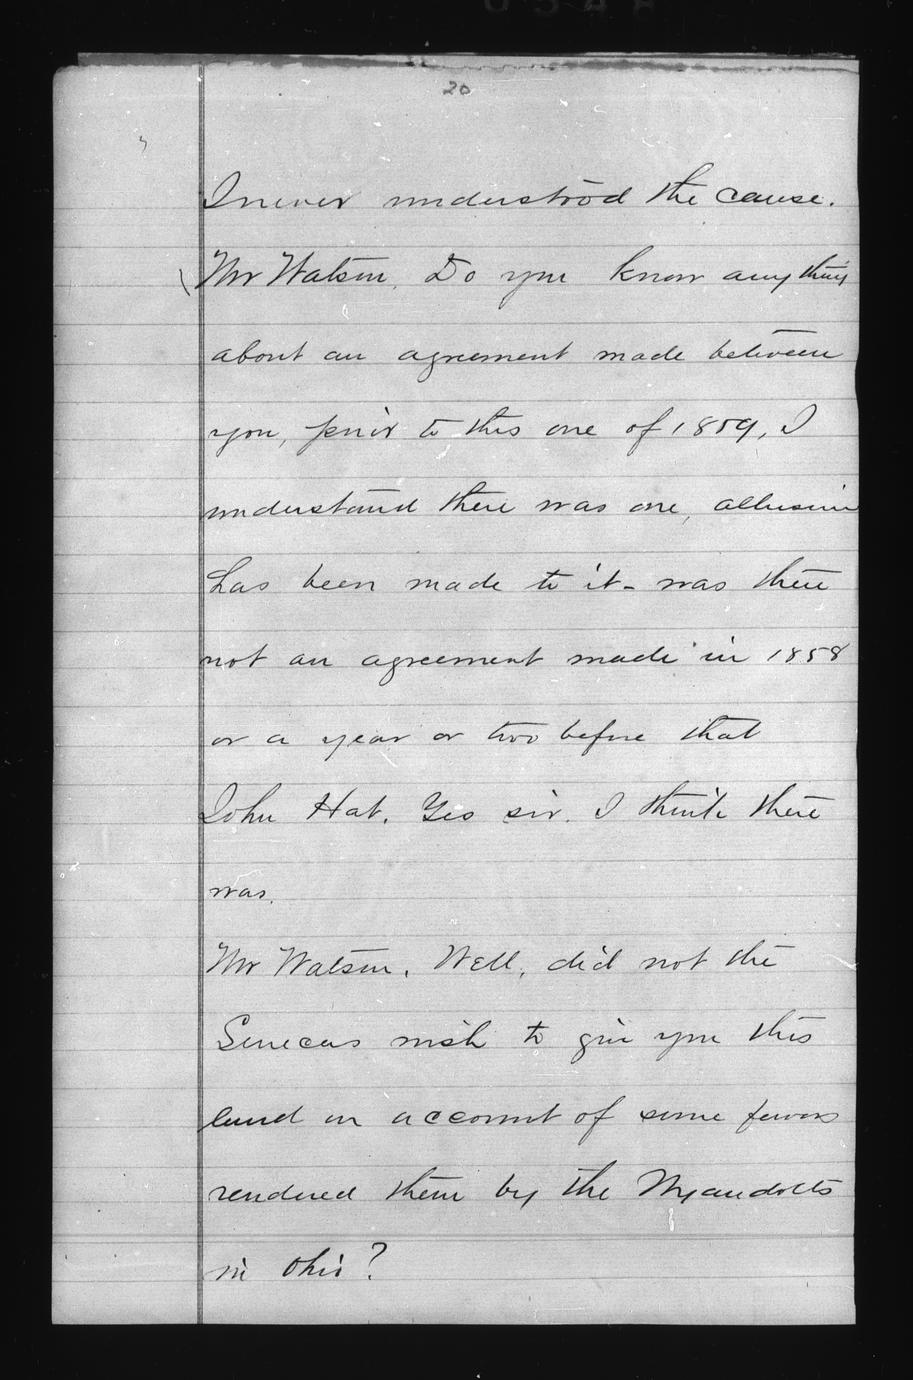 20
I never understood the cause.
Mr Watson. Do you know any thing
about an agreement made between
you, prior to this one of 1859, I
understand there was one, allusion
has been made to it - was there
not an agreement made in 1858
or a year or two before that
John Hat. Yes sir. I think there
was.
Mr Watson. Well, did not the
Senecas wish to give you this
land on account of some favors
rendered them by the Wyandotts
in Ohio?